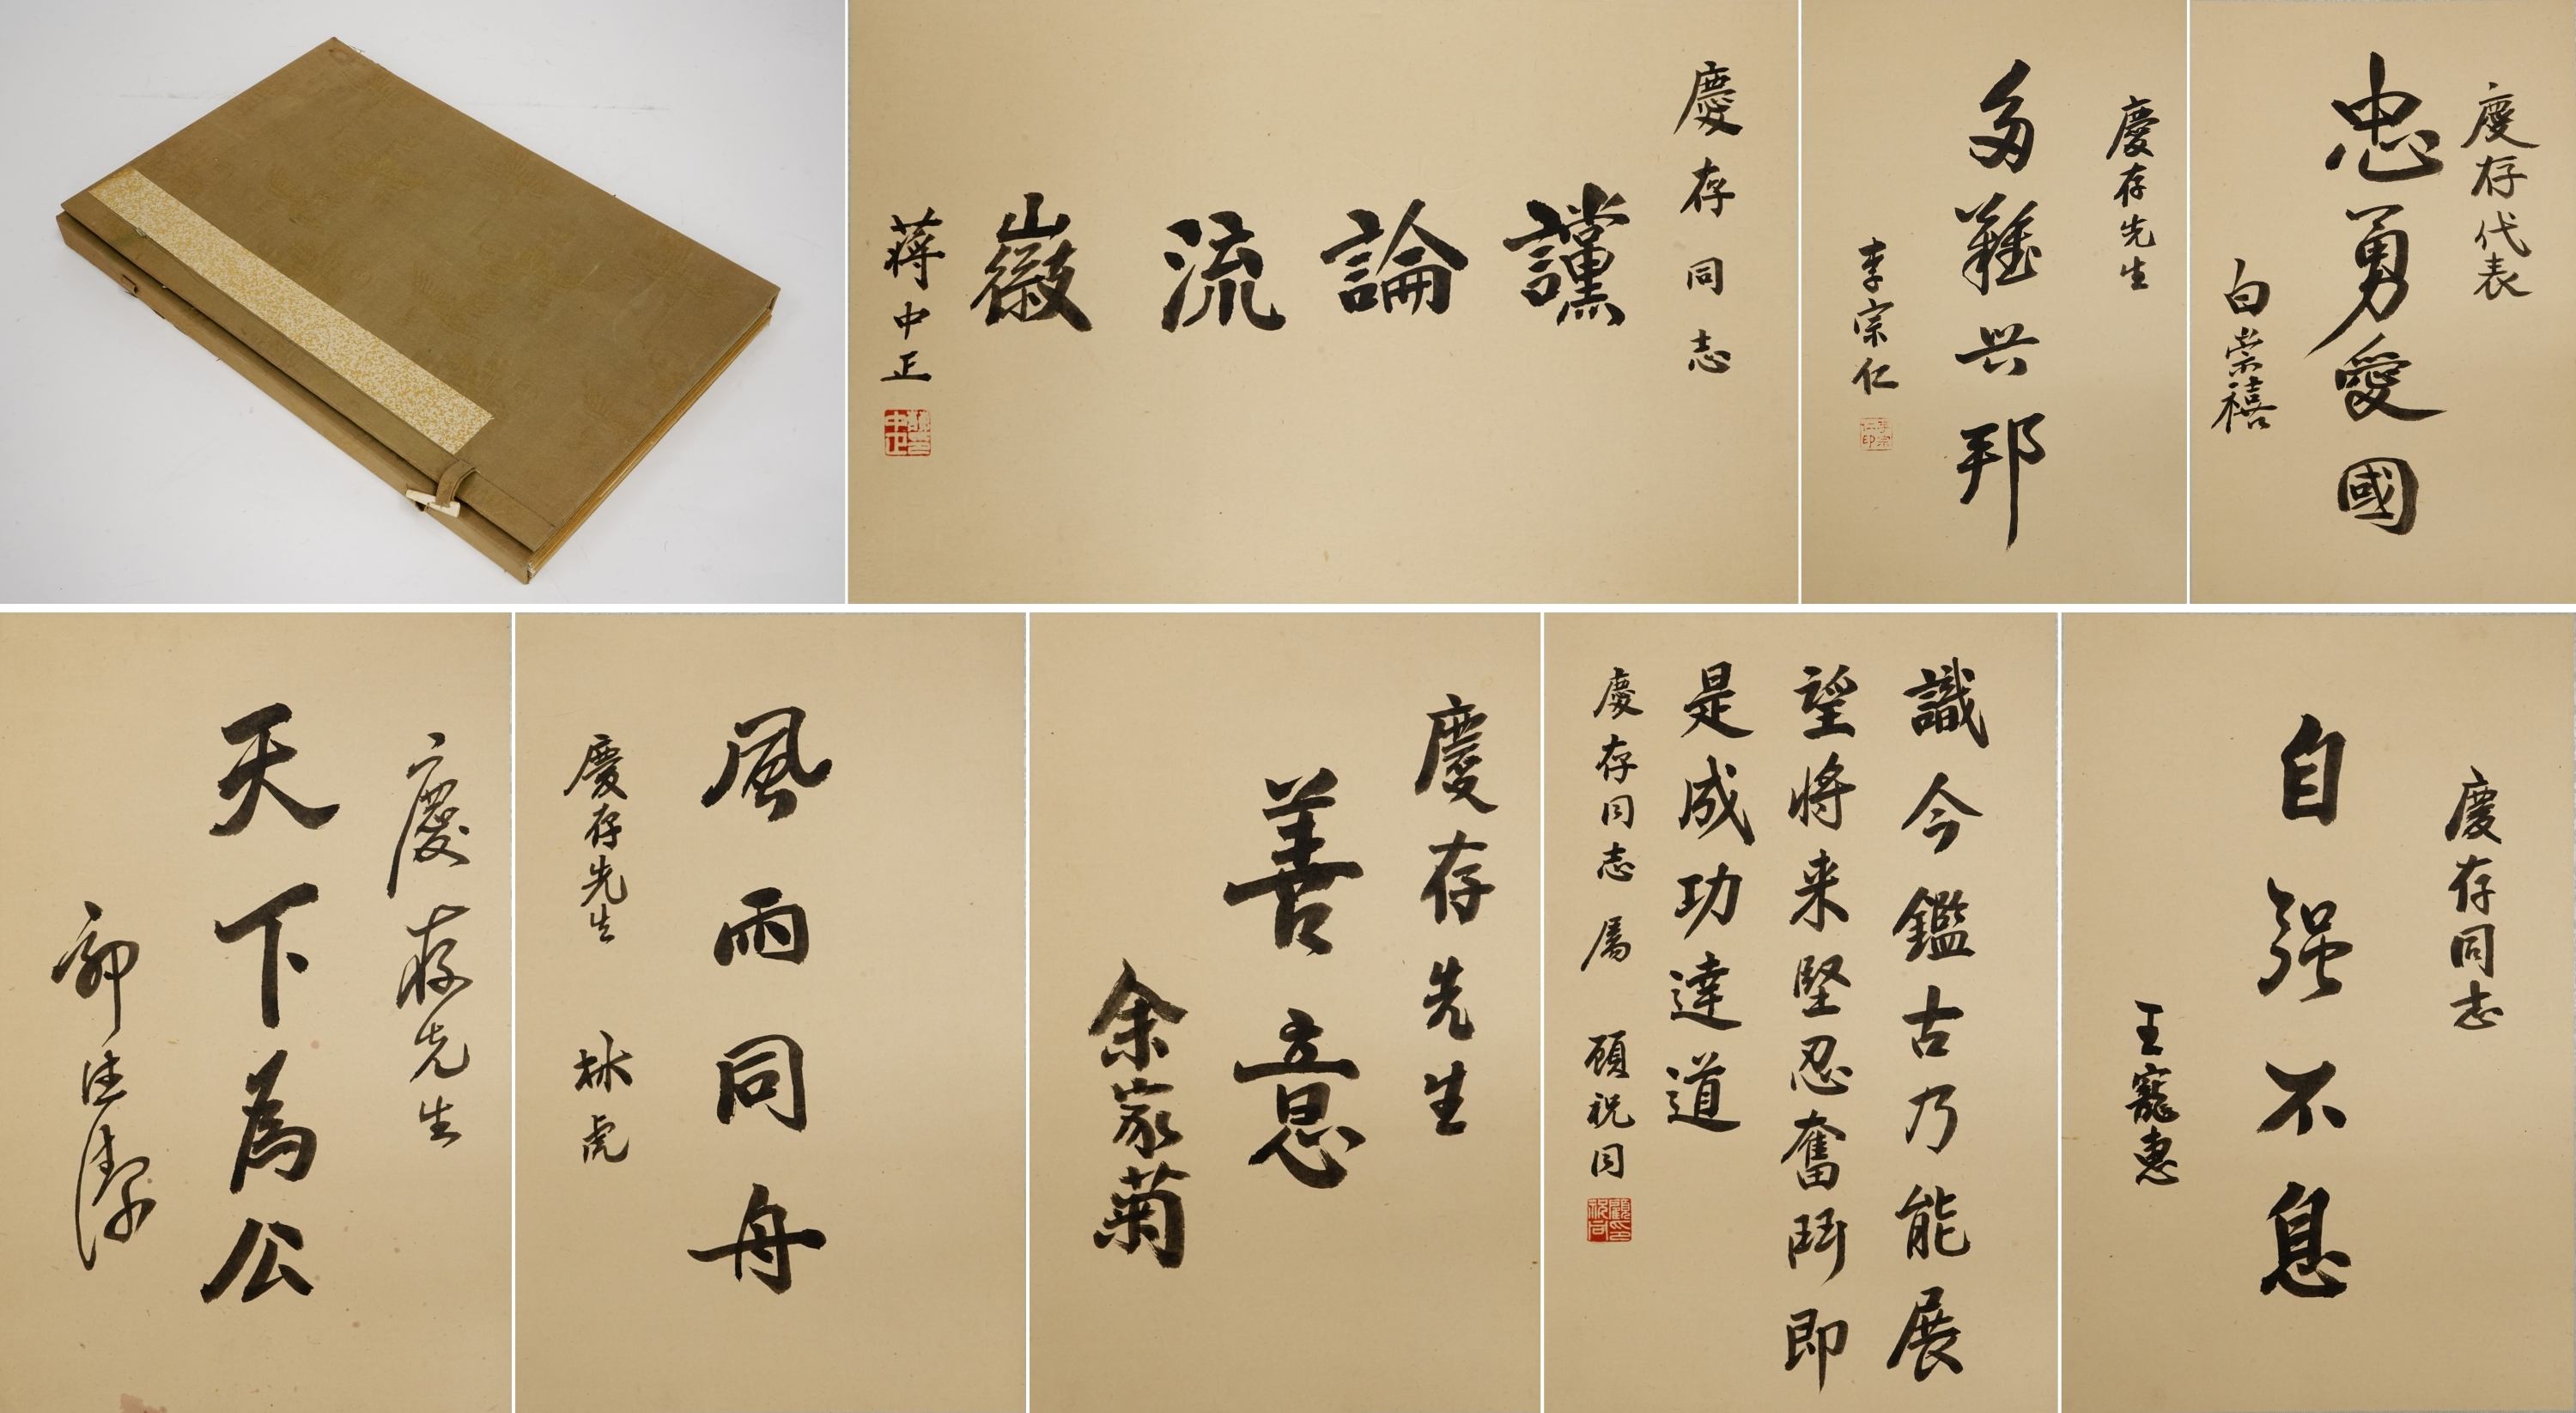 慶存同志
讜論流徽
蔣中正
慶存先生
多難興邦
李宗仁
李宗仁印
慶存代表
忠勇愛國
白崇禧
慶存先生
天下為公
風雨同舟
慶存先生 林虎
慶存先生
善意
余家菊
識今鑑古乃能展
望將来堅忍奮鬥即
是成功達道
慶存同志属 顧祝同
慶存同志
自强不息
王寵惠